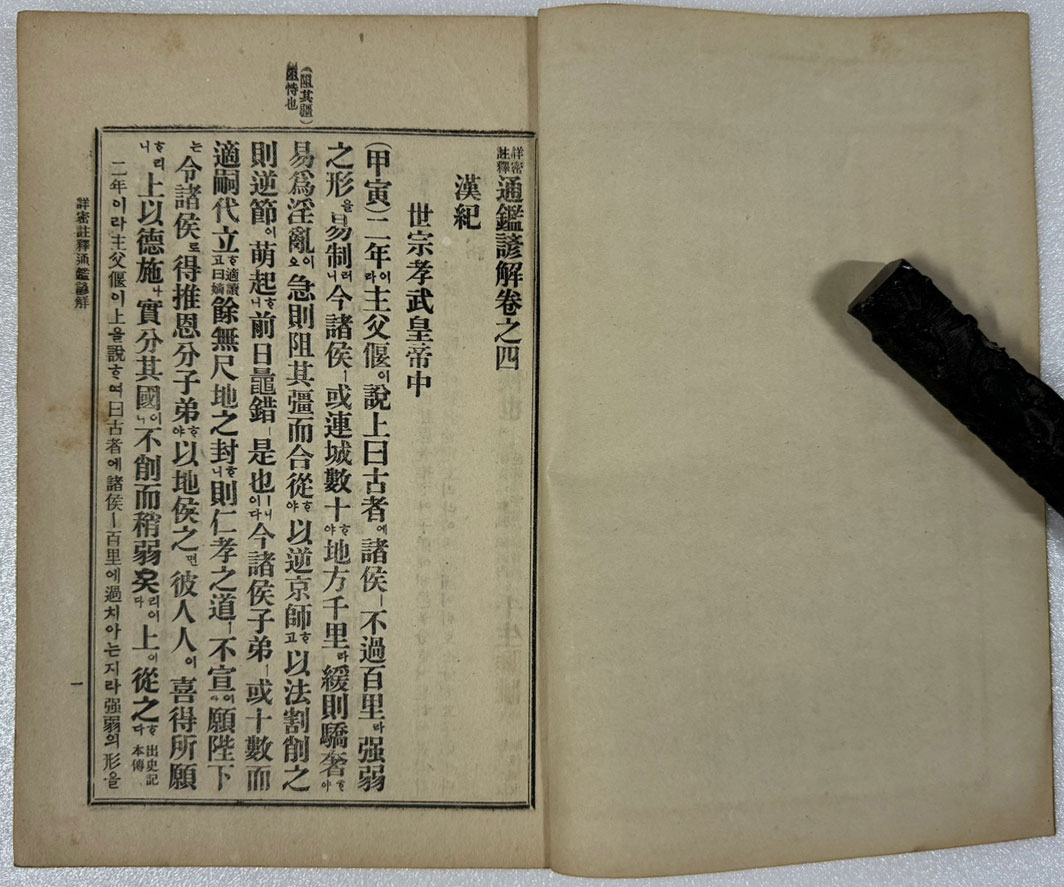 詳密註釋通鑑諺解卷之四
漢紀
世宗孝武皇帝中
(阻其疆)
阻恃也
(甲寅)二年이라主父偃이說上曰古者에諸侯ㅣ不過百里라强弱
之形을易制러니今諸侯ㅣ或連城數十ᄒᆞ야地方千里라緩則驕奢ᄒᆞ야
易爲淫亂이오急則阻其彊而合從ᄒᆞ야以逆京師ᄒᆞ고以法割削之
則逆節이萌起ᄒᆞ니前日鼂錯ㅣ是也ㅣ니이다今諸侯子弟ㅣ或十數而
適嗣代立ᄒᆞ고適讀曰嫡餘無尺地之封ᄒᆞ니則仁孝之道ㅣ不宣이라願陛下
는令諸侯로得推恩分子弟ᄒᆞ야以地侯之면彼人人이喜得所願
ᄒᆞ리니上以德施나實分其國이니不削而稍弱矣리이다上이從之ᄒᆞ다出史記本傳
二年이라主父偃이上을說ᄒᆞ여曰古者에諸侯ㅣ百里에過치아는지라强弱의形을
詳密註釋通鑑諺解
一